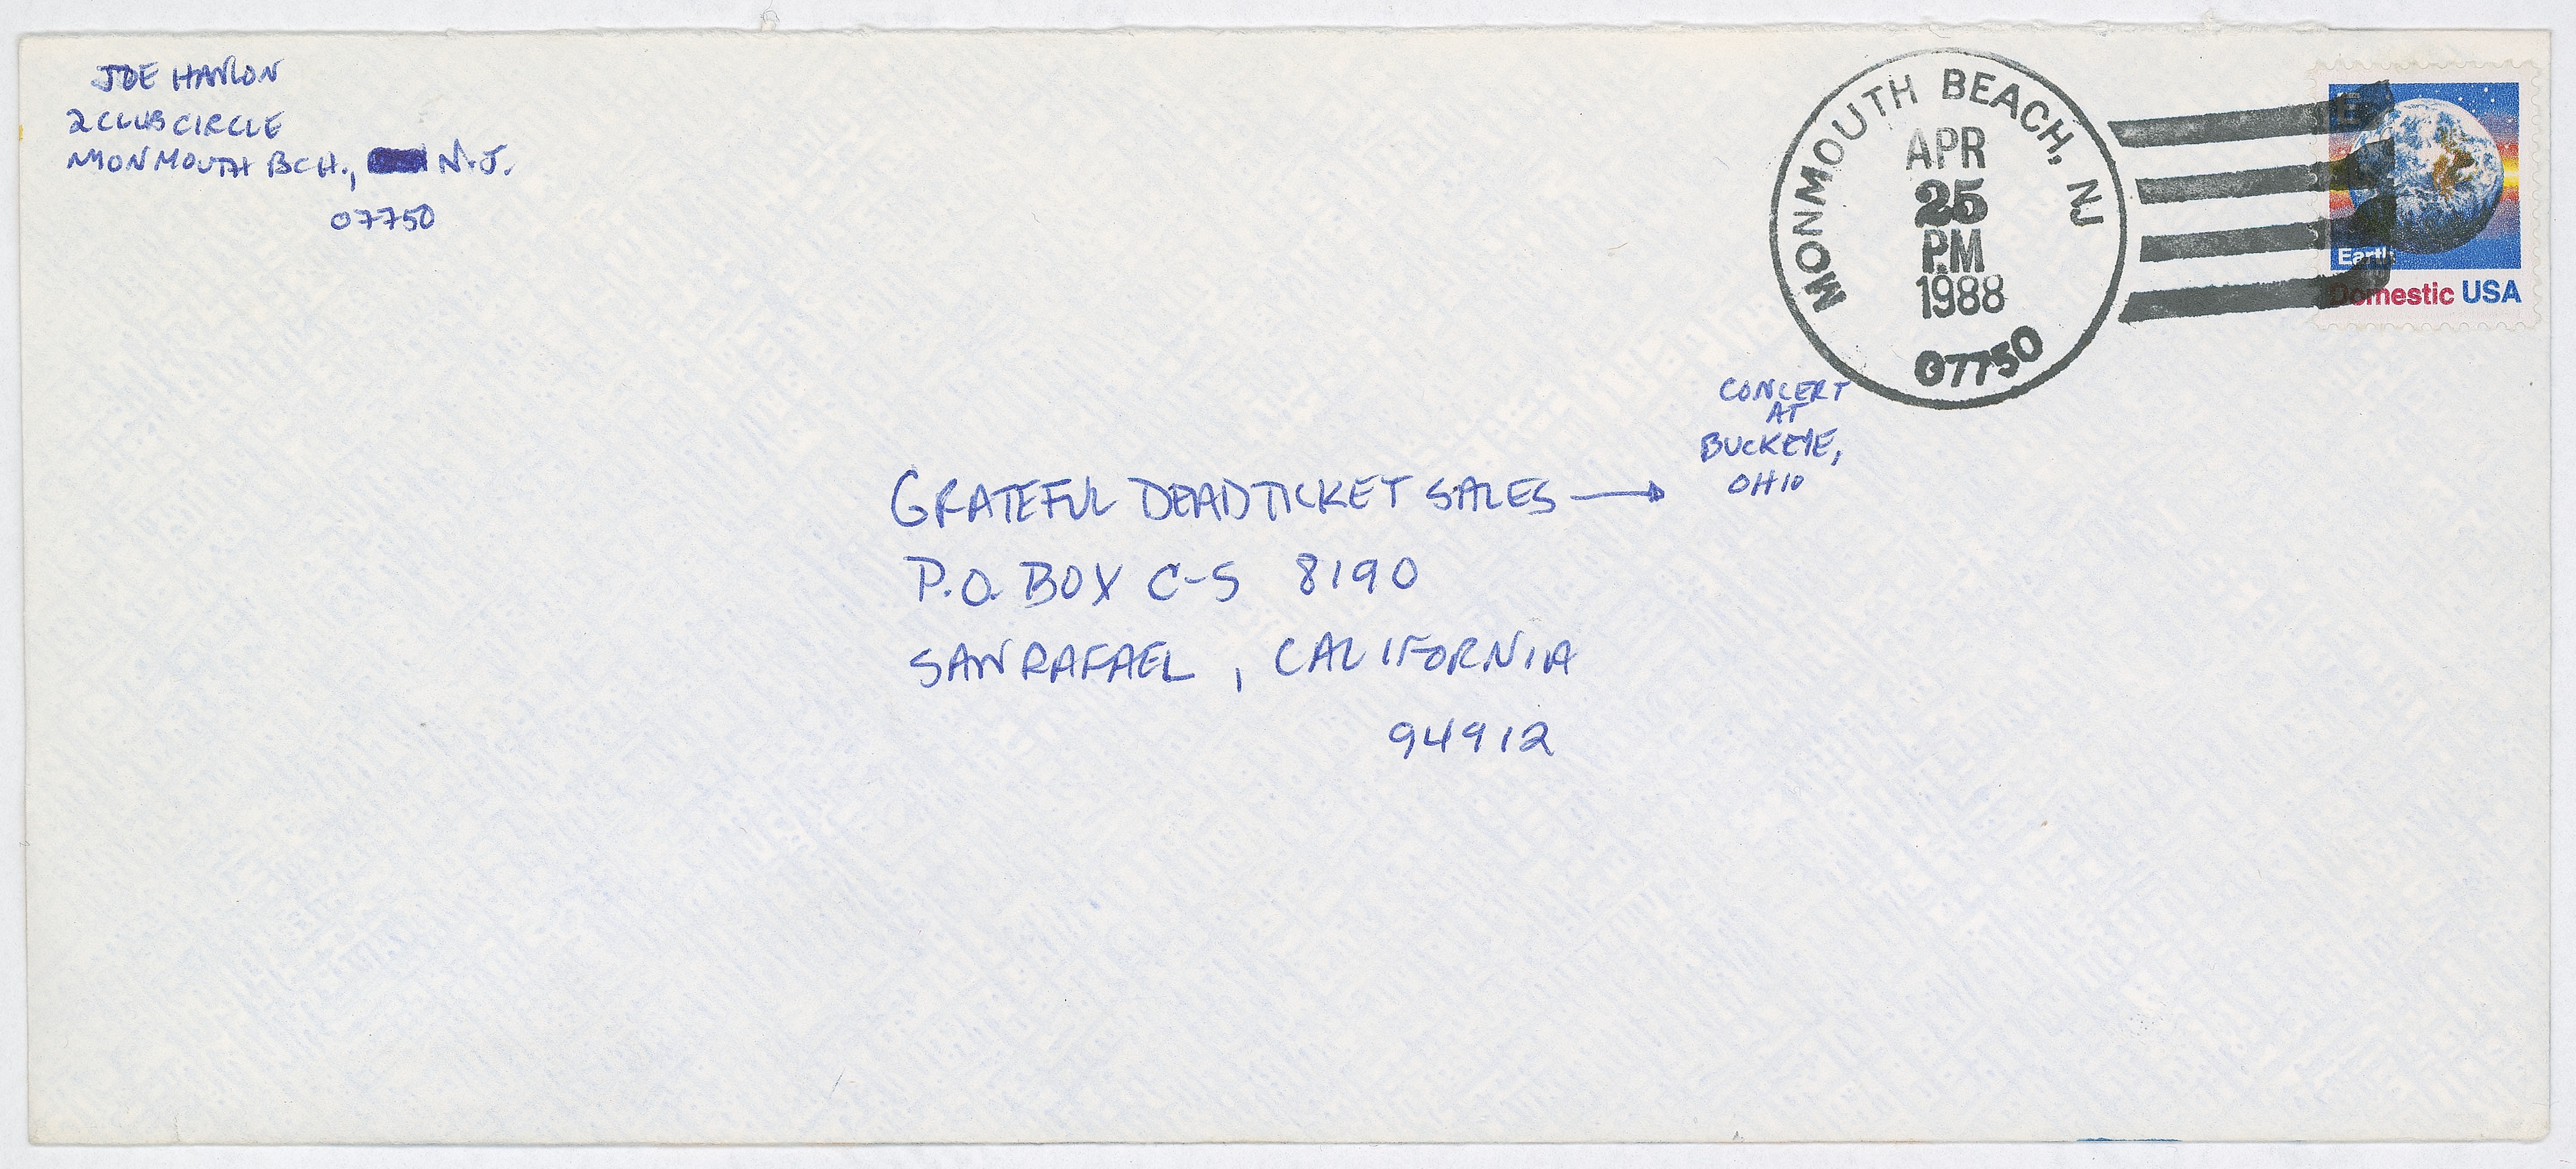 JOE HANLON
2 CLUB CIRCLE
MONMOUTH BCH., N.J.
07750
MONMOUTH BEACH, NJ
APR
25
PM
1988
07750
E
Earth
Domestic USA
CONCERT
AT
BUCKEYE,
OHIO
GRATEFUL DEAD TICKET SALES →
P.O. BOX C-S 8190
SAN RAFAEL, CALIFORNIA
94912